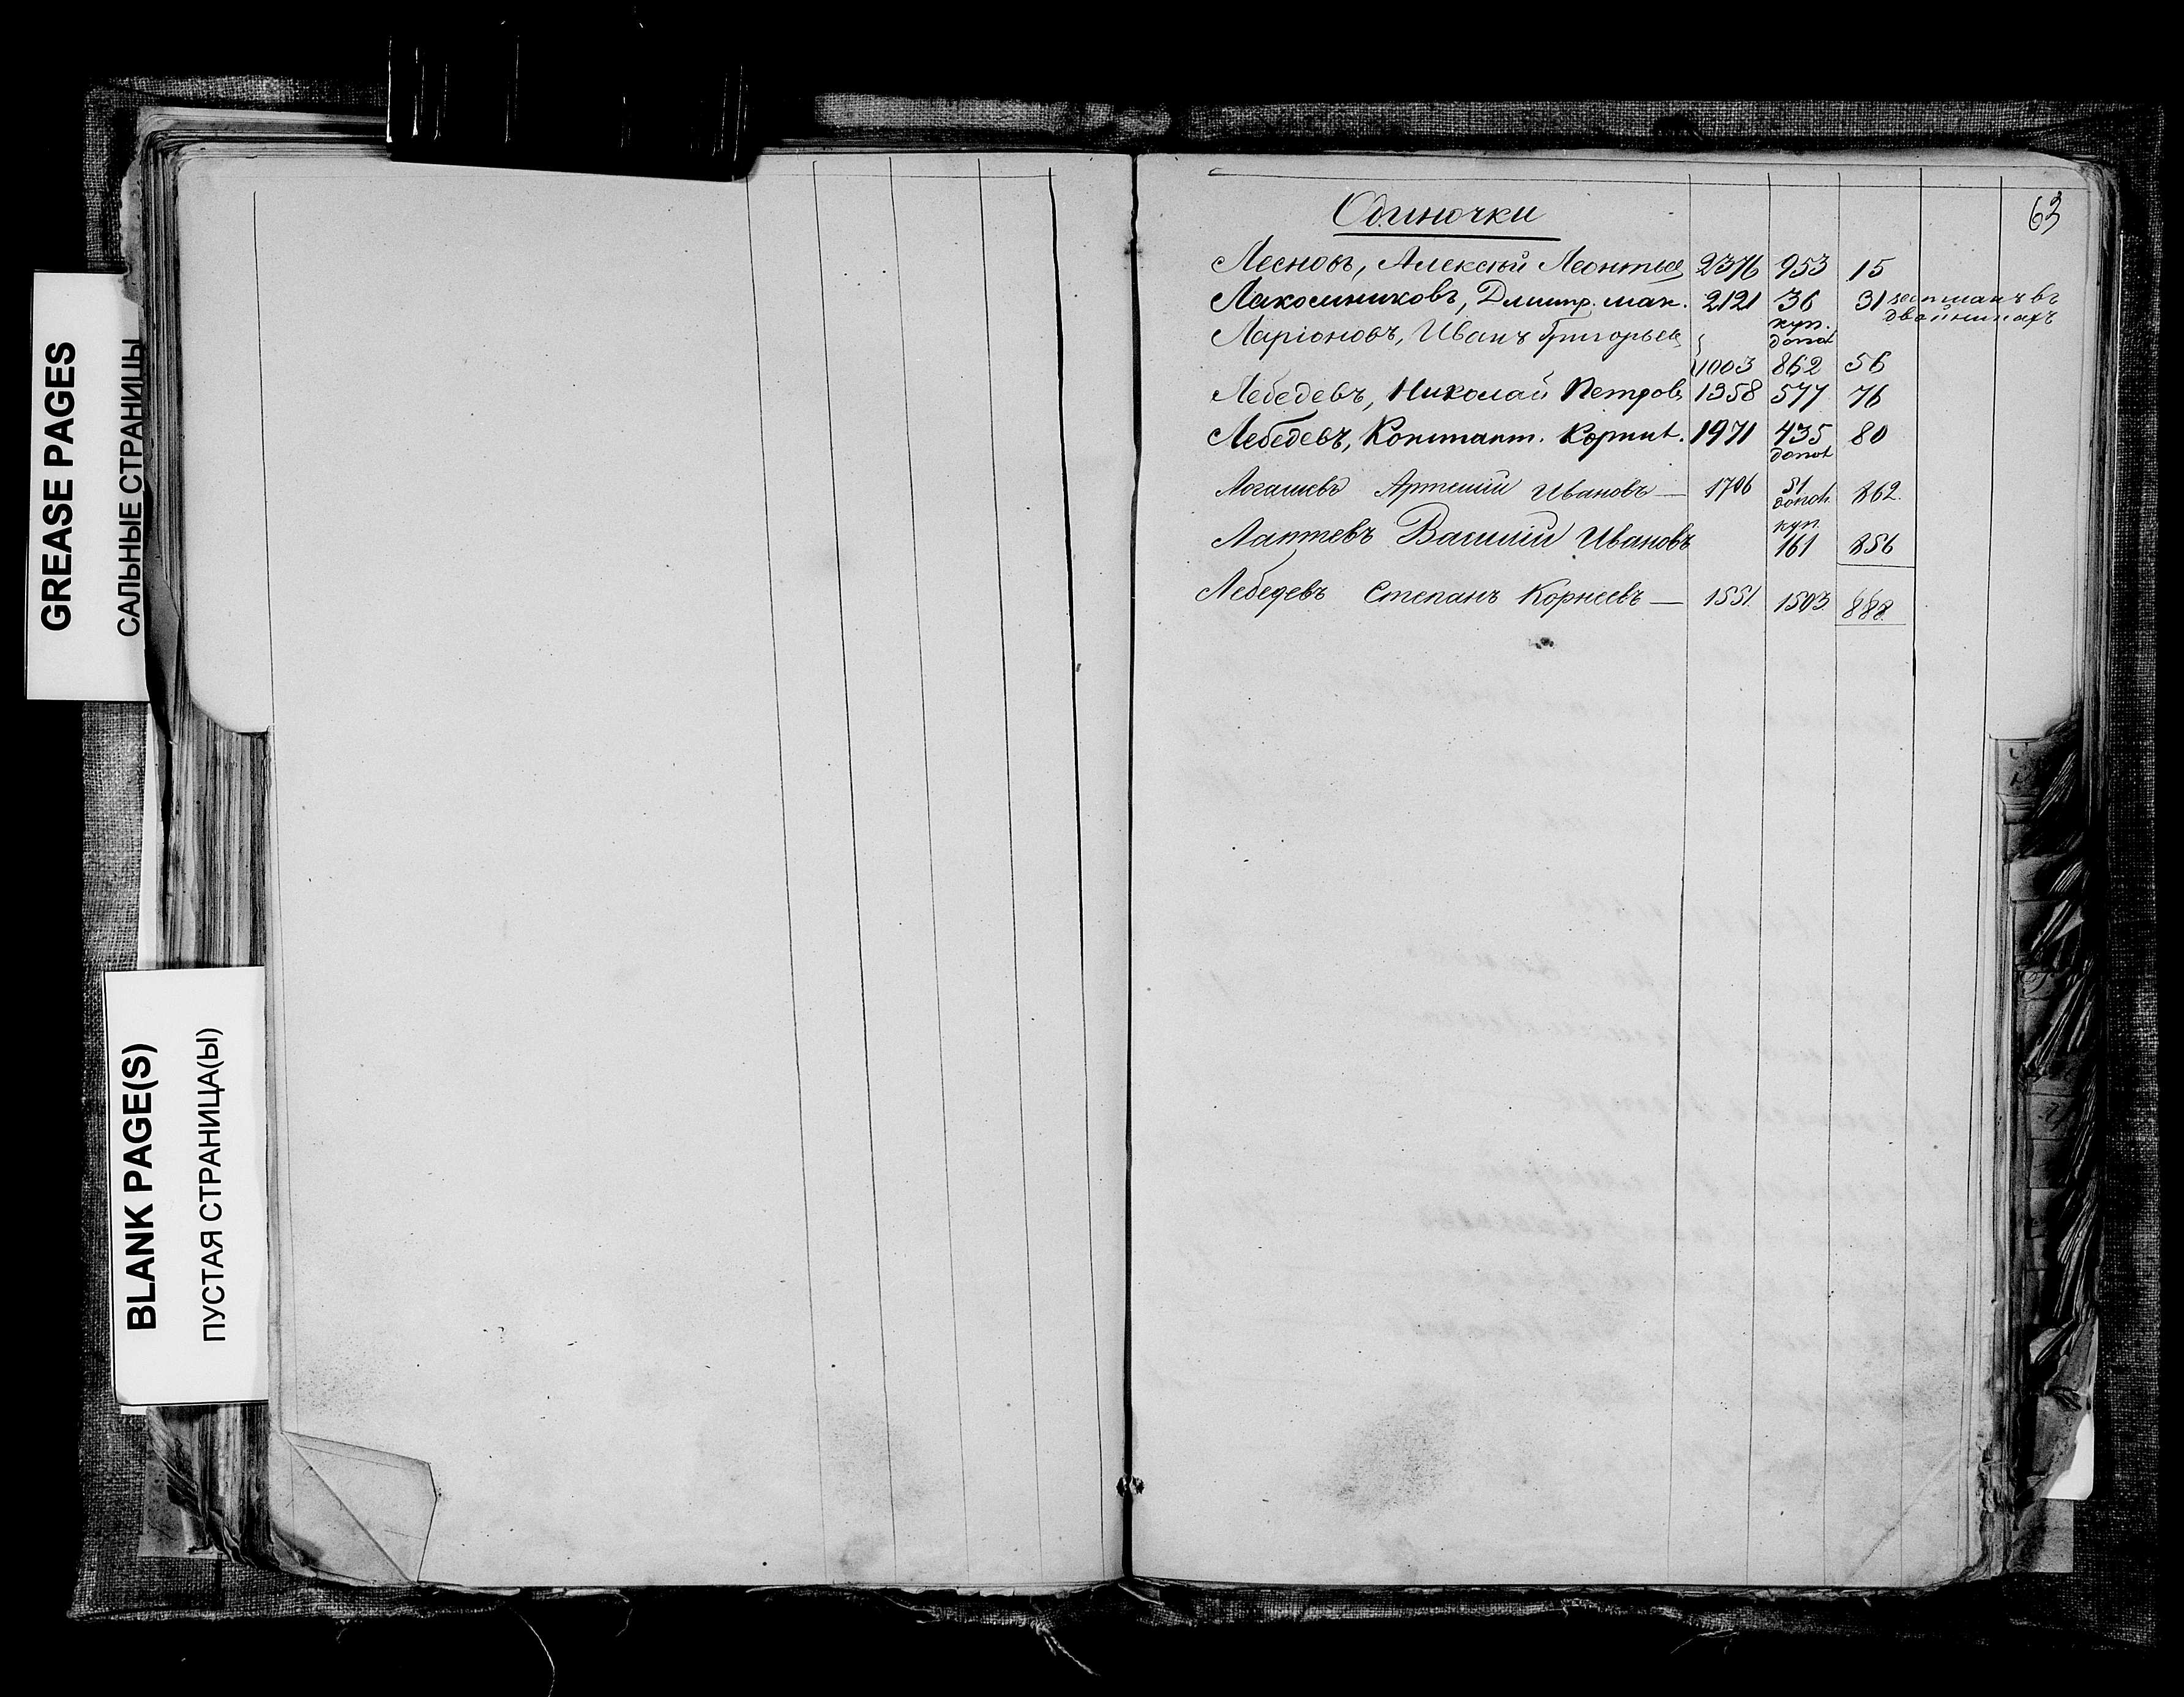 GREASE PAGES
САЛЬНЫЕ СТРАНИЦЫ
BLANK PAGE(S)
ПУСТАЯ СТРАНИЦА(Ы)
63
Одиночки
Лесновъ, Алексѣй Леонтьев 2376 953 15
Лакомниковъ, Дмитр. мак. 2121 36 31 въ
куп. двойникахъ
Ларіоновъ, Иванъ Григорьев допол
1003 862 56
Лебедевъ, Николай Петровъ 1358 577 76
Лебедевъ, Констант. Корнил. 1971 435 80
допол
Логашевъ Артемій Ивановъ — 1706 51 862.
допол.
куп.
Лаптевъ Василій Ивановъ 161 856
Лебедевъ Степанъ Корнеевъ — 1551. 1503. 888.